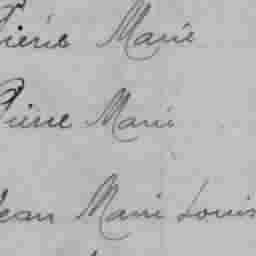 Pierre Marie
Pierre Marie
Jean Marie Louis